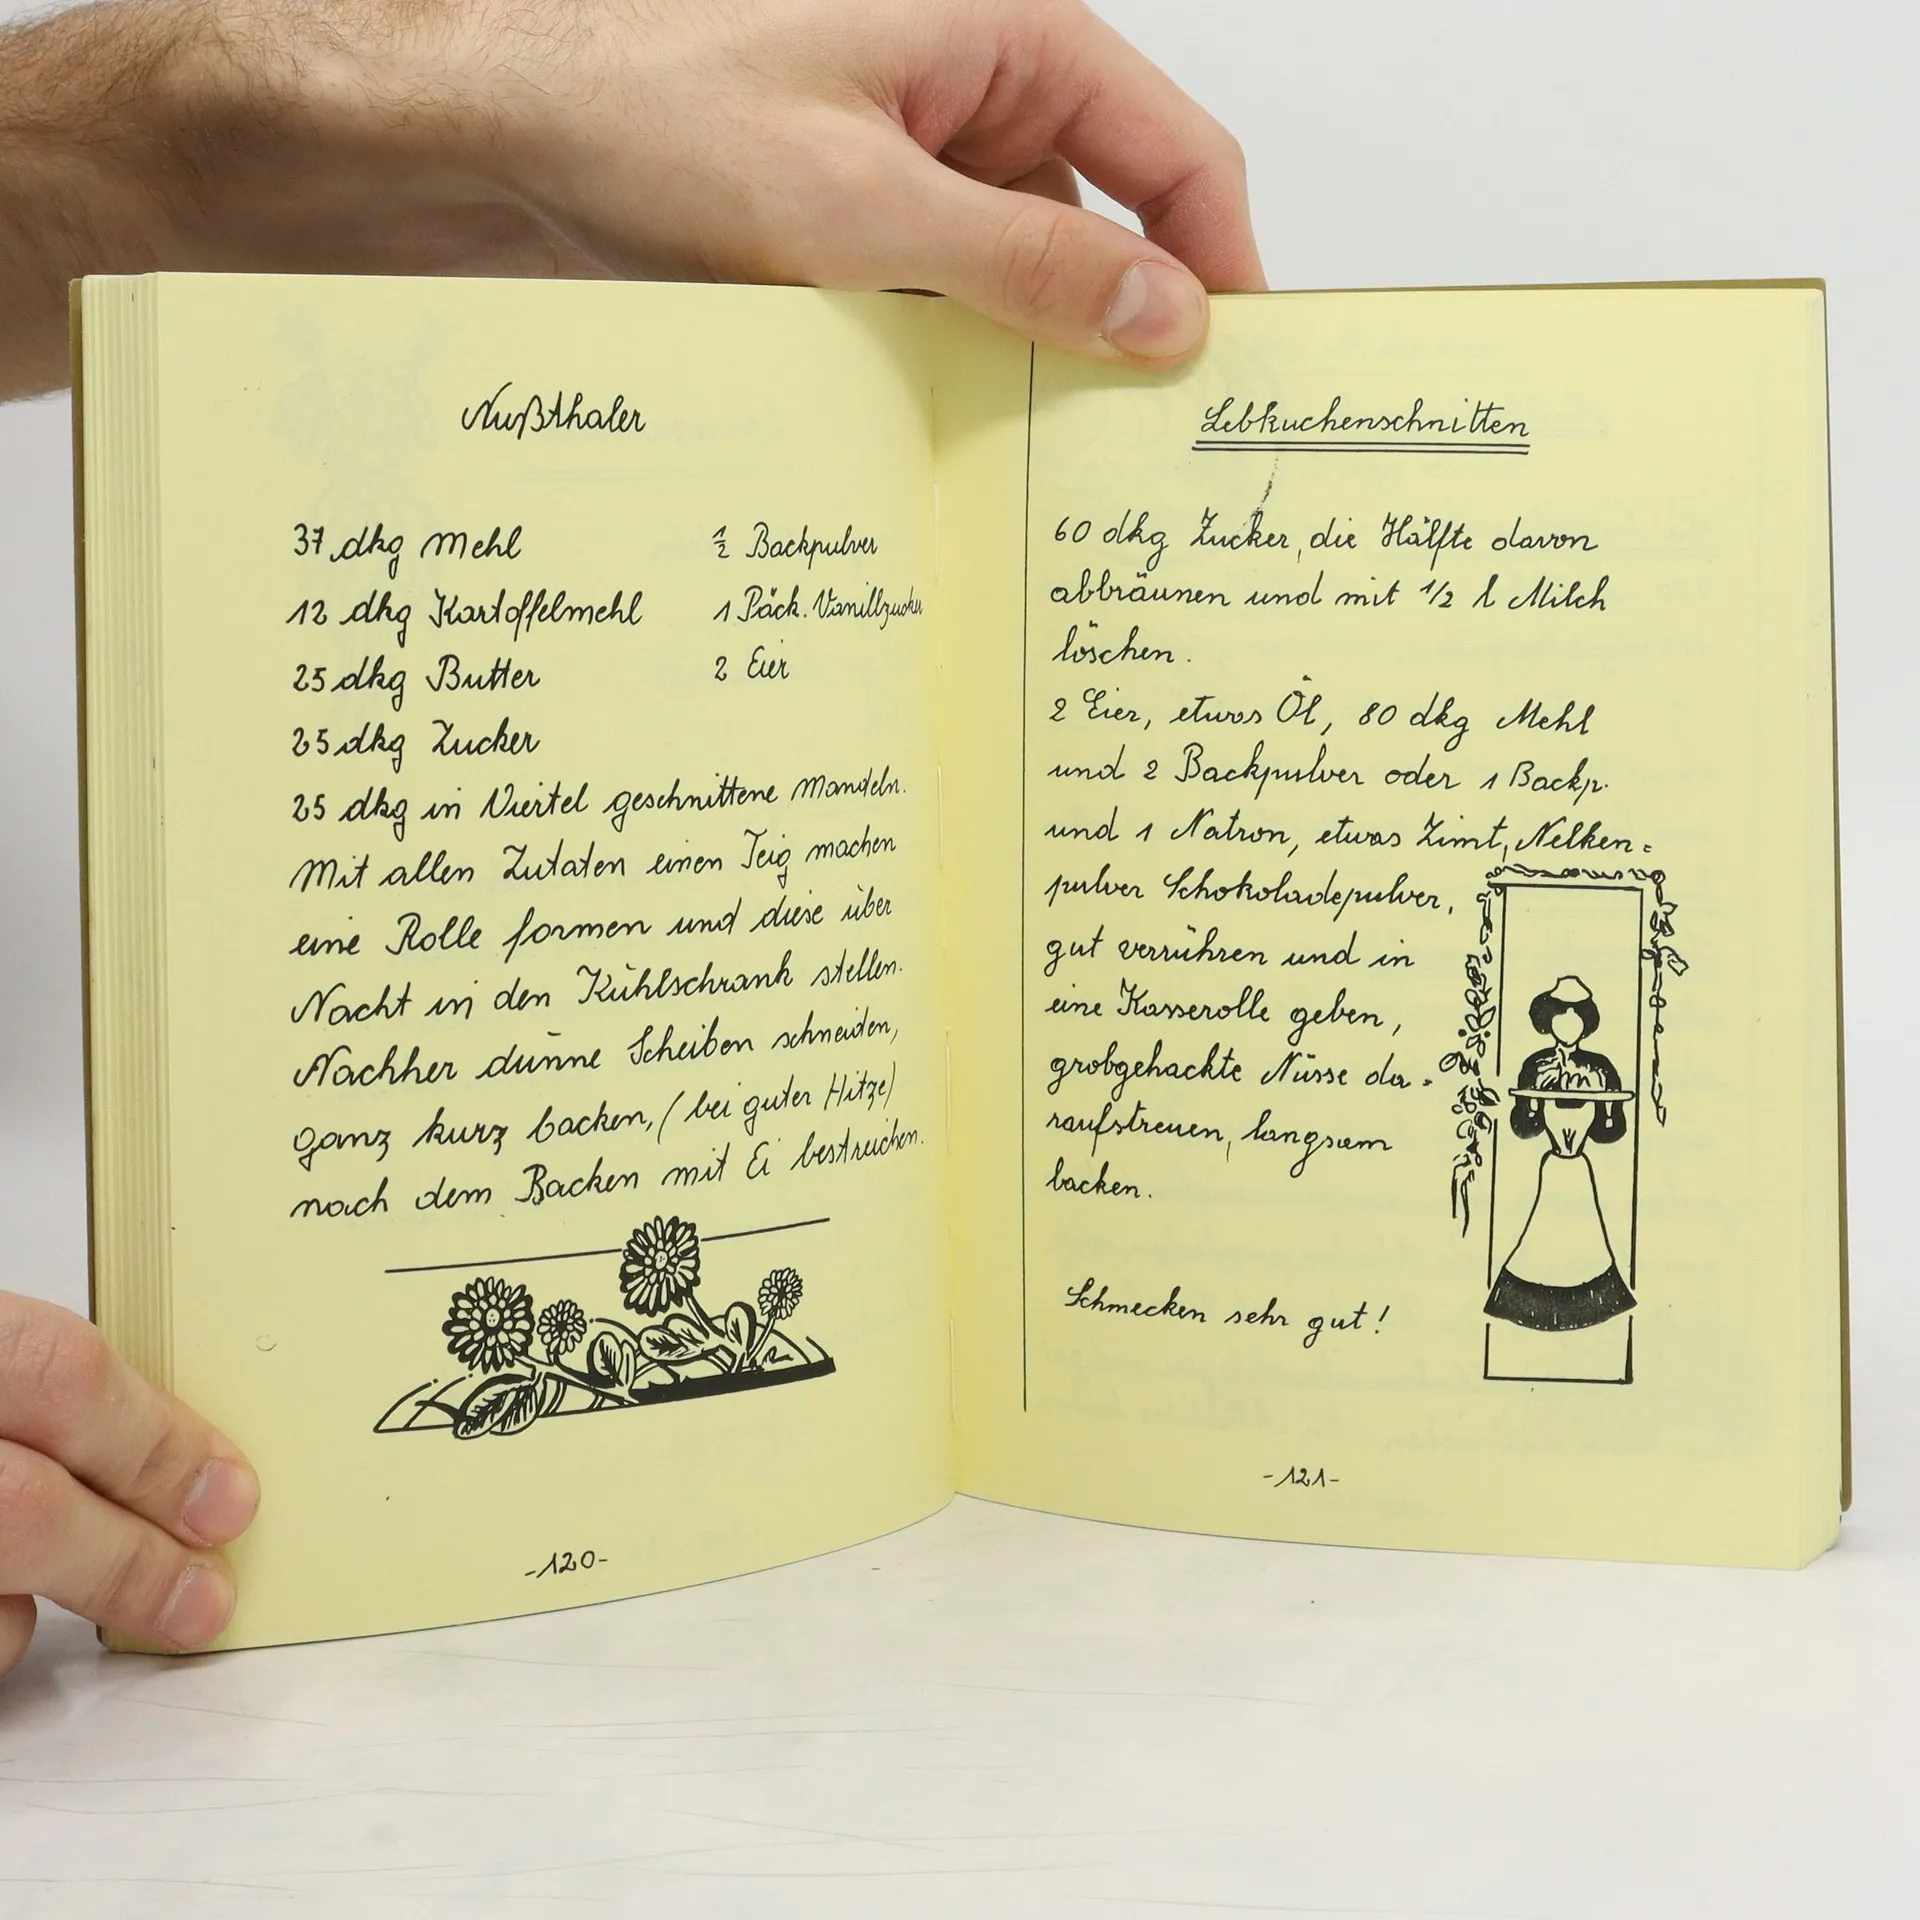 Nußthaler
37 dkg Mehl
12 dkg Kartoffelmehl
25 dkg Butter
25 dkg Zucker
½ Backpulver
1 Päck. Vanillzucker
2 Eier
25 dkg in Viertel geschnittene Mandeln.
Mit allen Zutaten einen Teig machen
eine Rolle formen und diese über
Nacht in den Kühlschrank stellen.
Nachher dünne Scheiben schneiden,
ganz kurz backen, (bei guter Hitze)
nach dem Backen mit Ei bestreichen.
-120-
Lebkuchenschnitten
60 dkg Zucker, die Hälfte davon
abbräunen und mit 1/2 l Milch
löschen.
2 Eier, etwas Öl, 80 dkg Mehl
und 2 Backpulver oder 1 Backp.
und 1 Natron, etwas Zimt, Nelken=
pulver Schokoladepulver,
gut verrühren und in
eine Kasserolle geben,
grobgehackte Nüsse da=
raufstreuen, langsam
backen.
Schmecken sehr gut!
-121-